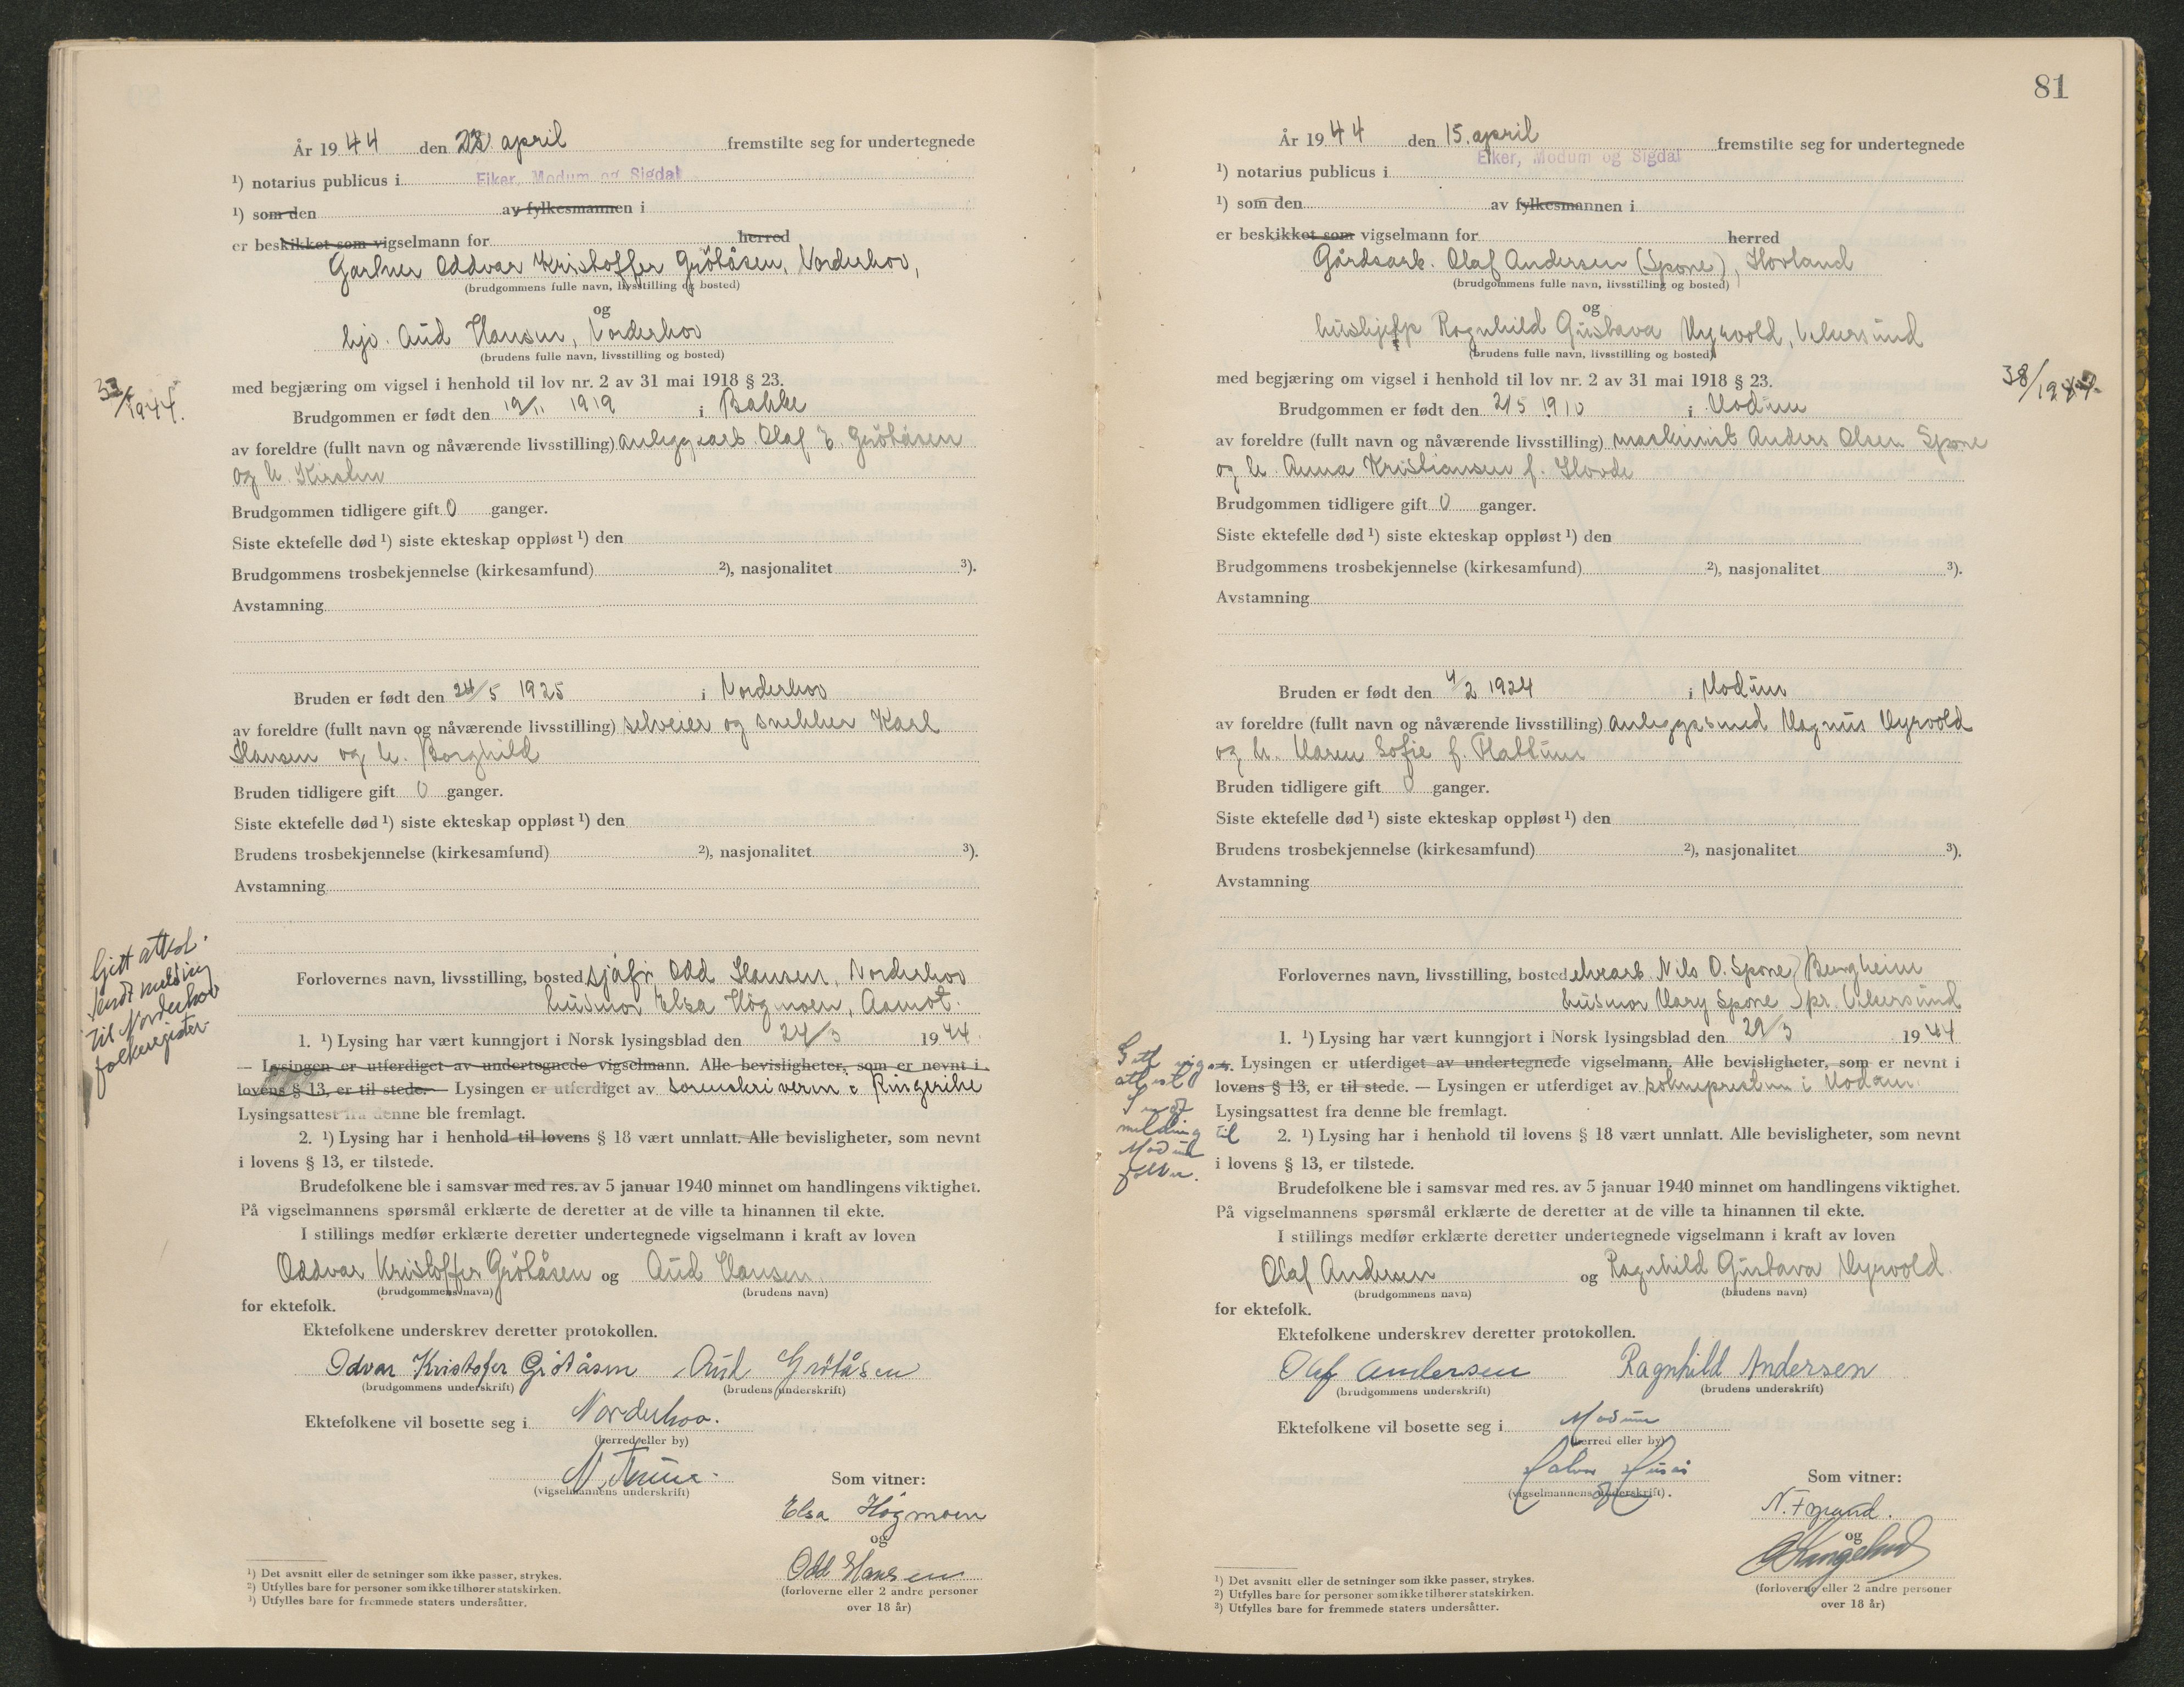 År 1944 den 28 april fremstilte seg for undertegnede
¹) notarius publicus i Eiker, Modum og Sigdal
¹) som den av fylkesmannen i
er beskikket som vigselmann for herred
Gartner Oddvar Kristoffer Grötåsen, Norderhov,
(brudgommens fulle navn, livsstilling og bosted)
og
hjv. Aud Hansen, Norderhov
(brudens fulle navn, livsstilling og bosted)
med begjæring om vigsel i henhold til lov nr. 2 av 31 mai 1918 § 23.
1944.
Brudgommen er født den 19/11 1919 i Bakke
av foreldre (fullt navn og nåværende livsstilling) anleggsarb. Olaf E. Grötåsen
og h. Kirsten
Brudgommen tidligere gift 0 ganger.
Siste ektefelle død ¹) siste ekteskap oppløst ¹) den
Brudgommens trosbekjennelse (kirkesamfund) ²), nasjonalitet ³).
Avstamning
Bruden er født den 24/5 1925 i Norderhov
av foreldre (fullt navn og nåværende livsstilling) selveier og snekker Karl
Hansen og h. Borghild
Bruden tidligere gift 0 ganger.
Siste ektefelle død ¹) siste ekteskap oppløst ¹) den
Brudens trosbekjennelse (kirkesamfund) ²), nasjonalitet ³).
Avstamning
Gitt attest.
Sendt melding
til Norderhov
folkeregister.
Forlovernes navn, livsstilling, bosted sjåfr. Odd Hansen, Norderhov
husmor Elsa Högmoen, Aamot.
1. ¹) Lysing har vært kunngjort i Norsk lysingsblad den 24/3 1944
— Lysingen er utferdiget av undertegnede vigselmann. Alle bevisligheter, som er nevnt i
lovens § 13, er til stede. — Lysingen er utferdiget av sorenskriveren i Ringerike
Lysingsattest fra denne ble fremlagt.
2. ¹) Lysing har i henhold til lovens § 18 vært unnlatt. Alle bevisligheter, som nevnt
i lovens § 13, er tilstede.
Brudefolkene ble i samsvar med res. av 5 januar 1940 minnet om handlingens viktighet.
På vigselmannens spørsmål erklærte de deretter at de ville ta hinannen til ekte.
I stillings medfør erklærte deretter undertegnede vigselmann i kraft av loven
Oddvar Kristoffer Grötåsen og Aud Hansen
(brudgommens navn) (brudens navn)
for ektefolk.
Ektefolkene underskrev deretter protokollen.
Odvar Kristofer Grötåsen Aud Grötåsen
(brudgommens underskrift) (brudens underskrift)
Ektefolkene vil bosette seg i Norderhov.
(herred eller by)
(vigselmannens underskrift)
Som vitner:
Elsa Högmoen
og
Odd Hansen
(forloverne eller 2 andre personer
over 18 år)
¹) Det avsnitt eller de setninger som ikke passer, strykes.
²) Utfylles bare for personer som ikke tilhører statskirken.
³) Utfylles bare for fremmede staters undersåtter.
81
År 1944 den 15. april fremstilte seg for undertegnede
¹) notarius publicus i Eiker, Modum og Sigdal
¹) som den av fylkesmannen i
er beskikket som vigselmann for herred
Gårdsarb. Olaf Andersen (Spone), Hovland
(brudgommens fulle navn, livsstilling og bosted)
og
hushjelp Ragnhild Gustava Myrvold, Vikersund
(brudens fulle navn, livsstilling og bosted)
med begjæring om vigsel i henhold til lov nr. 2 av 31 mai 1918 § 23.
38/1944.
Brudgommen er født den 2/5 1910 i Modum
av foreldre (fullt navn og nåværende livsstilling) maskinist Anders Olsen Spone
og h. Anna Kristiansen f. Hovde
Brudgommen tidligere gift 0 ganger.
Siste ektefelle død ¹) siste ekteskap oppløst ¹) den
Brudgommens trosbekjennelse (kirkesamfund) ²), nasjonalitet ³).
Avstamning
Bruden er født den 4/2 1924 i Modum
av foreldre (fullt navn og nåværende livsstilling) anleggssmed Magnus Myrvold
og h. Maren Sofie f. Flattum
Bruden tidligere gift 0 ganger.
Siste ektefelle død ¹) siste ekteskap oppløst ¹) den
Brudens trosbekjennelse (kirkesamfund) ²), nasjonalitet ³).
Avstamning
Forlovernes navn, livsstilling, bosted elvearb. Nils O. Spone, Bergheim
husmor Mary Spone pr. Vikersund
1. ¹) Lysing har vært kunngjort i Norsk lysingsblad den 29/3 1944
— Lysingen er utferdiget av undertegnede vigselmann. Alle bevisligheter, som er nevnt i
lovens § 13, er til stede. — Lysingen er utferdiget av soknepresten i Modum
Lysingsattest fra denne ble fremlagt.
Gitt vigsels
attest
Sendt
melding til
Modum
folker.
2. ¹) Lysing har i henhold til lovens § 18 vært unnlatt. Alle bevisligheter, som nevnt
i lovens § 13, er tilstede.
Brudefolkene ble i samsvar med res. av 5 januar 1940 minnet om handlingens viktighet.
På vigselmannens spørsmål erklærte de deretter at de ville ta hinannen til ekte.
I stillings medfør erklærte deretter undertegnede vigselmann i kraft av loven
Olaf Andersen og Ragnhild Gustava Myrvold
(brudgommens navn) (brudens navn)
for ektefolk.
Ektefolkene underskrev deretter protokollen.
Olaf Andersen Ragnhild Andersen
(brudgommens underskrift) (brudens underskrift)
Ektefolkene vil bosette seg i Modum
(herred eller by)
(vigselmannens underskrift).
Som vitner:
og
(forloverne eller 2 andre personer
over 18 år)
¹) Det avsnitt eller de setninger som ikke passer, strykes.
²) Utfylles bare for personer som ikke tilhører statskirken.
³) Utfylles bare for fremmede staters undersåtter.